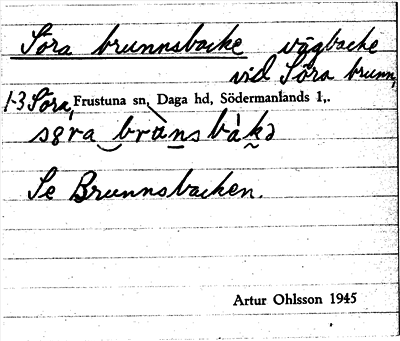 Söra brunnsbacke vägbacke
vid Söra brunn,
1-3 Söra, Frustuna sn, Daga hd, Södermanlands l.
Se Brunnsbacken.
Artur Ohlsson 1945